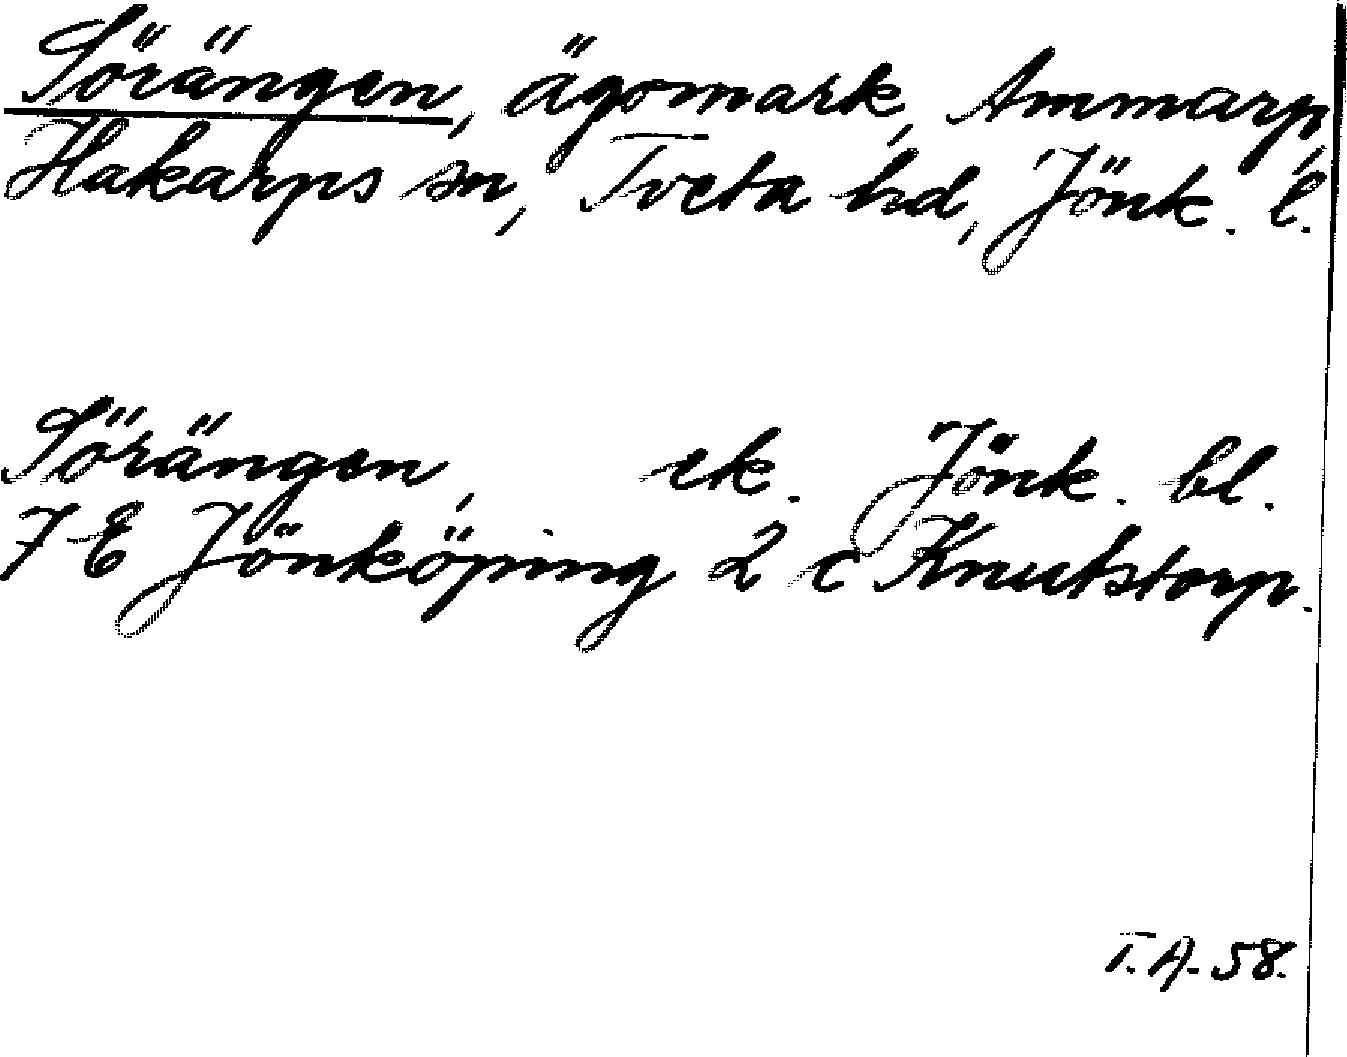 Sörängen, ägomark, Ammarp,
Hakarps sn, Tveta hd, Jönk. l.
Sörängen, ek. Jönk. bl.
7 E Jönköping 2 c Knutstorp.
T.A. 58.